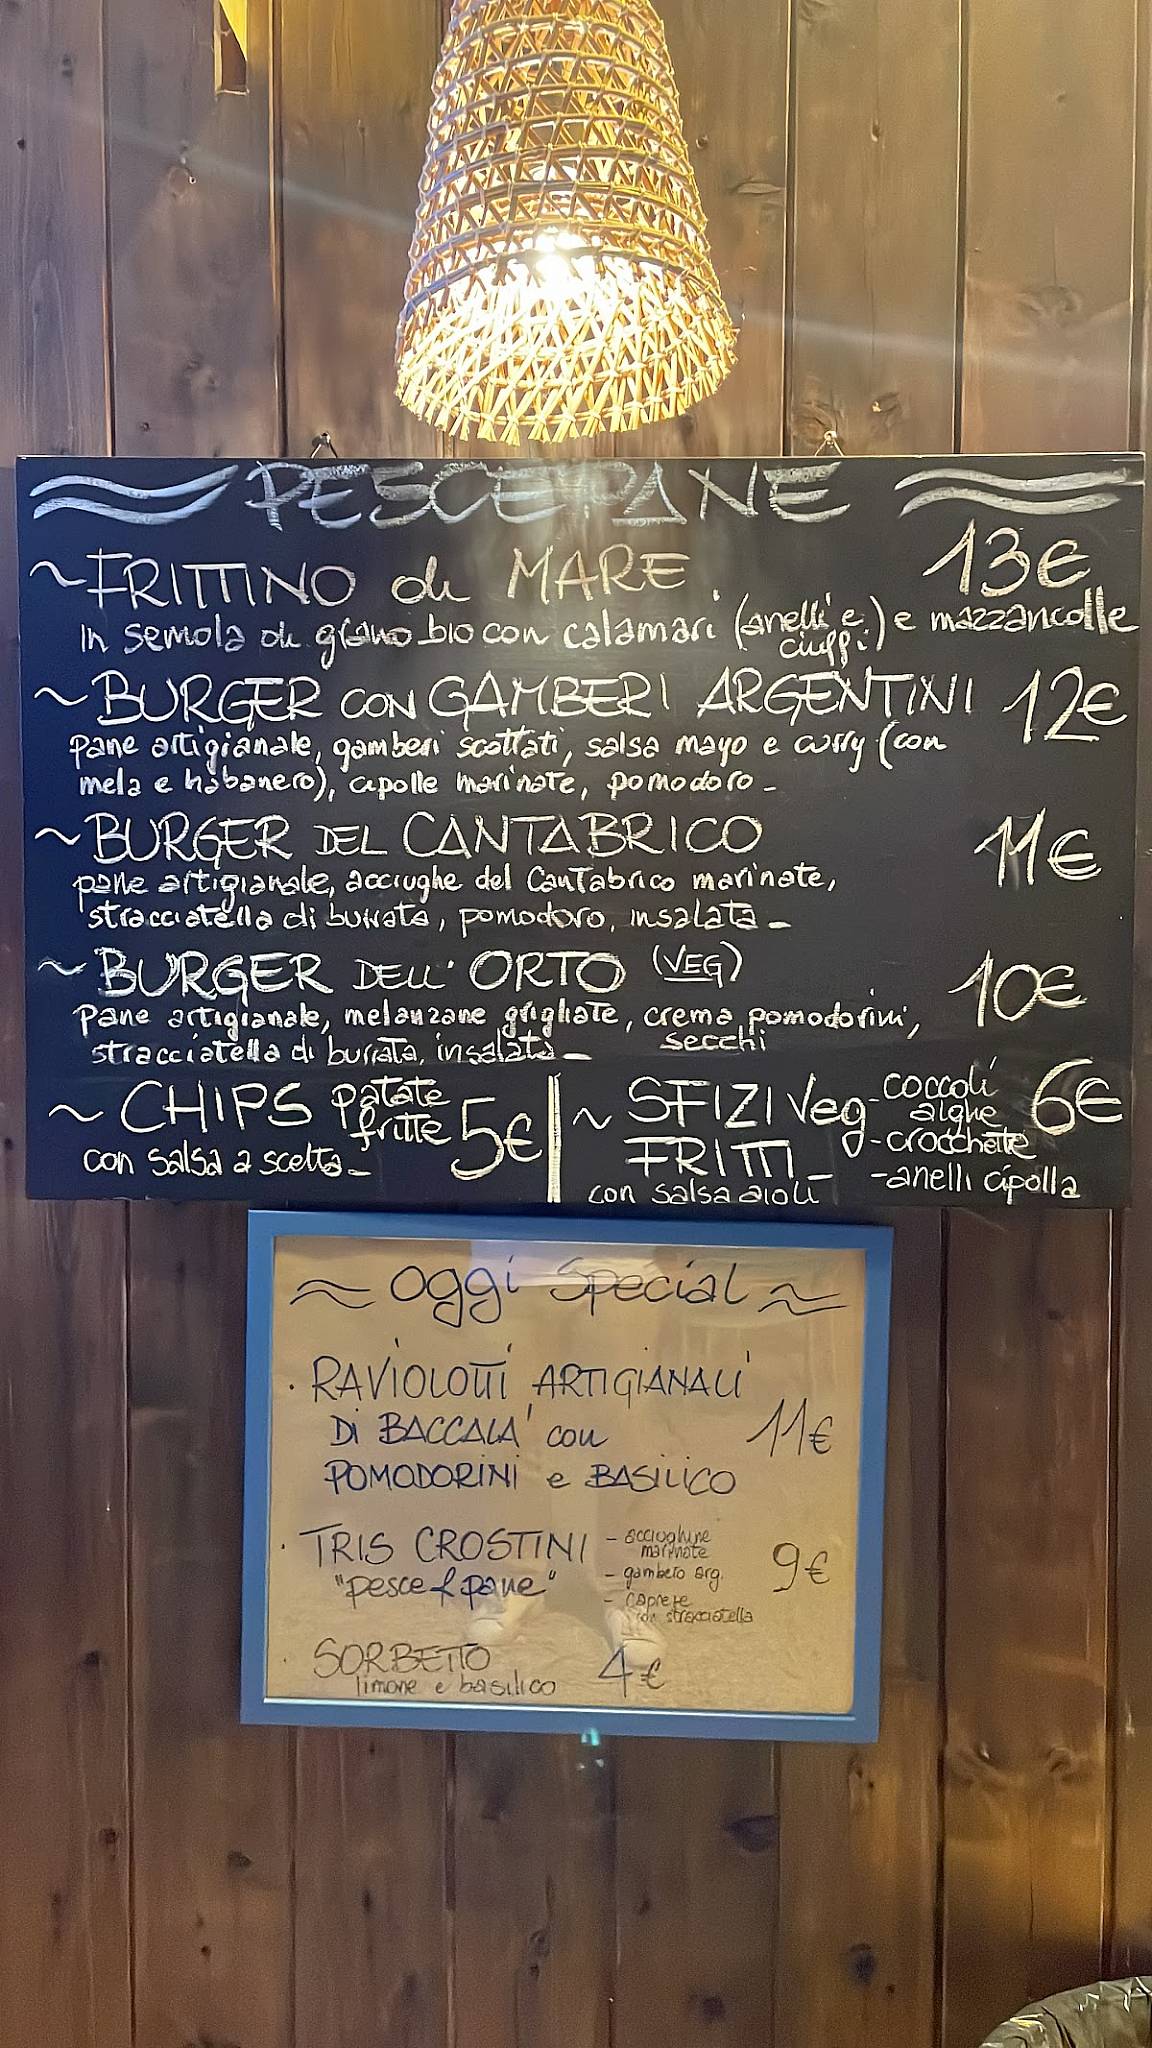 PESCEPANE
~ FRITTINO di MARE 13€
in semola di grano bio con calamari (anelli e ciuffi) e mazzancolle
~ BURGER con GAMBERI ARGENTINI 12€
pane artigianale, gamberi scottati, salsa mayo e curry (con
mela e habanero), cipolle marinate, pomodoro -
~ BURGER DEL CANTABRICO 11€
pane artigianale, acciughe del Cantabrico marinate,
stracciatella di burrata, pomodoro, insalata -
~ BURGER DELL' ORTO (VEG) 10€
pane artigianale, melanzane grigliate, crema pomodorini secchi,
stracciatella di burrata, insalata -
~ CHIPS patate fritte 5€
con salsa a scelta -
~ SFIZI Veg FRITTI - 6€
con salsa aioli
- coccoli alghe
- crocchette
- anelli cipolla
~ Oggi Special ~
· RAVIOLOTTI ARTIGIANALI
DI BACCALA' con 11€
POMODORINI e BASILICO
· TRIS CROSTINI
"pesce & pane" 9€
- acciughine
marinate
- gambero arg.
- caprese
con stracciatella
· SORBETTO 4€
limone e basilico